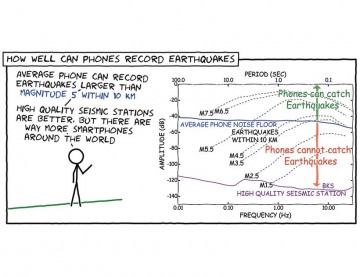 HOW WELL CAN PHONES RECORD EARTHQUAKES
AVERAGE PHONE CAN RECORD
EARTHQUAKES LARGER THAN
MAGNITUDE 5 WITHIN 10 KM
HIGH QUALITY SEISMIC STATIONS
ARE BETTER, BUT THERE ARE
WAY MORE SMARTPHONES
AROUND THE WORLD
PERIOD (SEC)
100.0
10.0
1.0
0.1
Phones can catch
Earthquakes
M7.5
M6.5
AVERAGE PHONE NOISE FLOOR
EARTHQUAKES
WITHIN 10 KM
Phones cannot catch
Earthquakes
M5.5
M4.5
M3.5
M2.5
M1.5
BKS
HIGH QUALITY SEISMIC STATION
AMPLITUDE (dB)
0
-20
-40
-60
-80
-100
-120
-140
0.01
0.10
1.00
10.00
FREQUENCY (Hz)